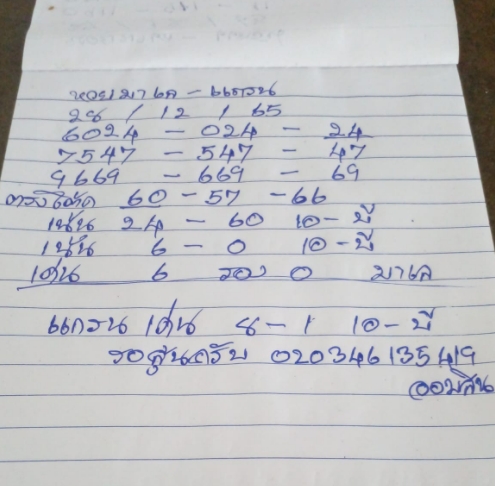 หวยมาเล - แกรน
28 / 12 / 65
6024 - 024 - 24
7547 - 547 - 47
9669 - 669 - 69
60 - 57 - 66
เน้น 24 - 60 10 - ปี
เน้น 6 - 0 10 - ปี
เด่น 6 รอง 0 มาเล
แกรน เด่น 8 - 1 10 - ปี
020346135419
ออมสิน